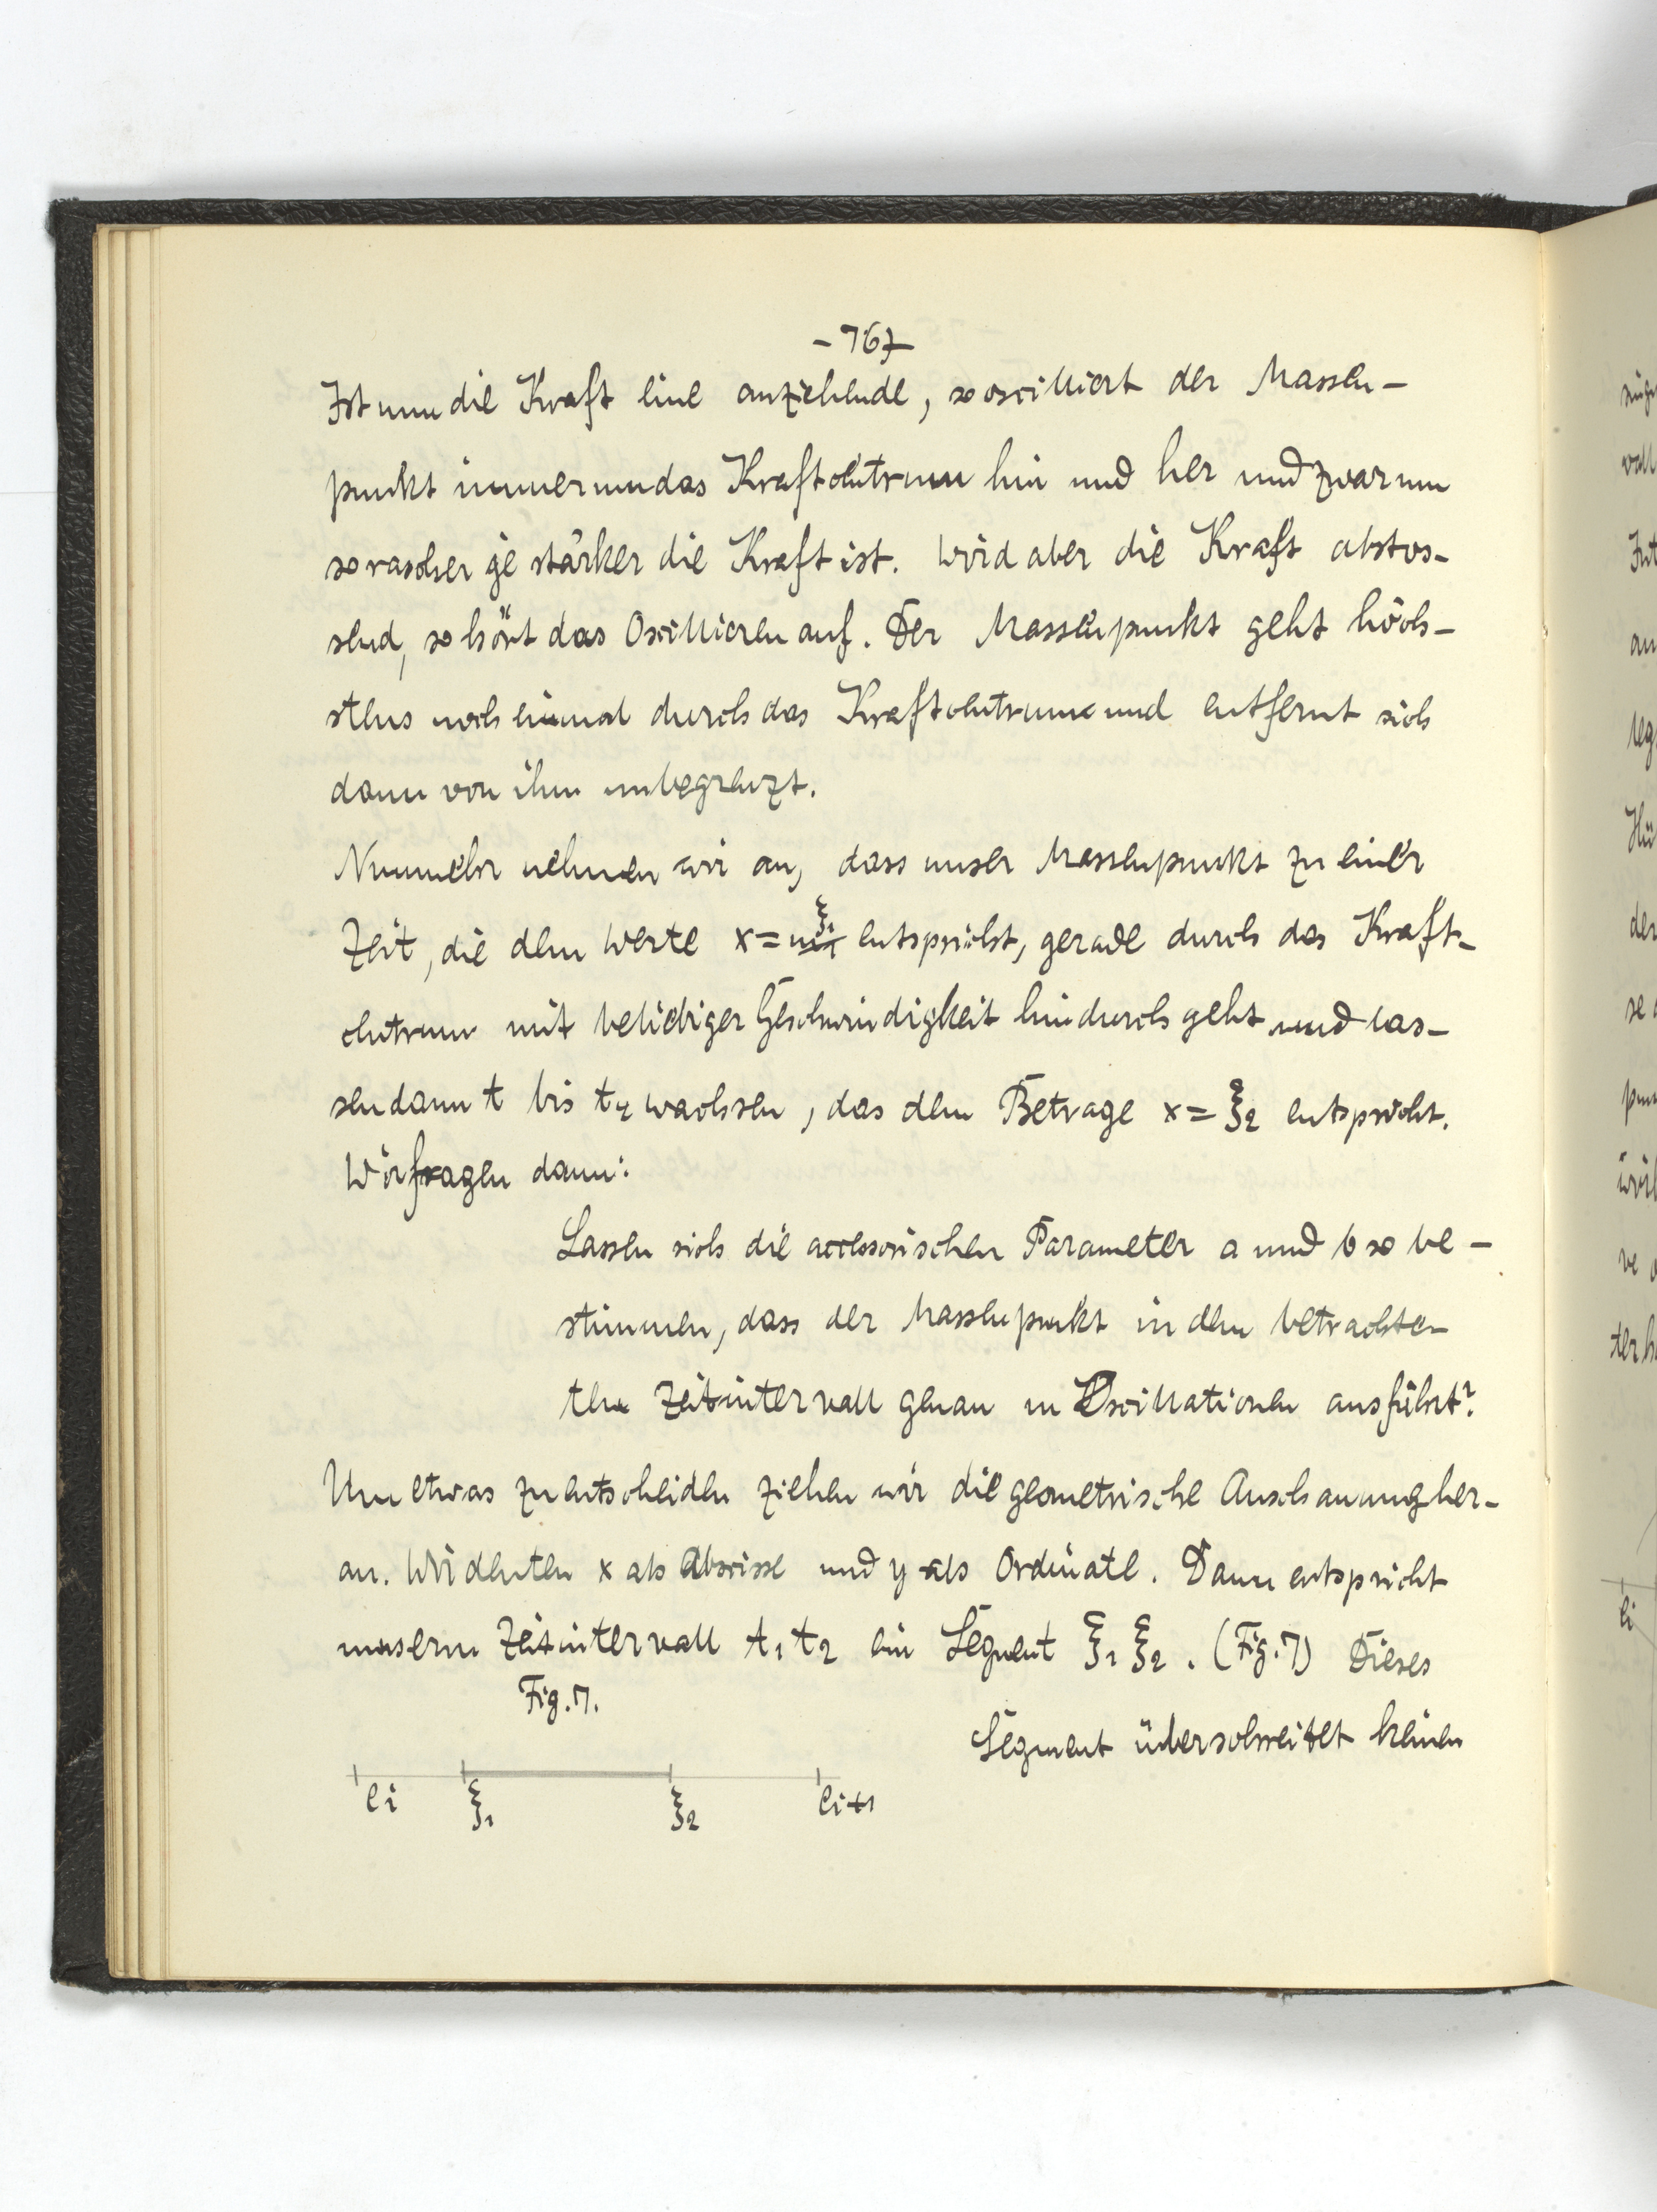 -767-
Ist nun die Kraft eine anziehende, so oscilliert der Massen-
punkt immer um das Kraftcentrum hin und her und zwar um
so rascher je stärker die Kraft ist. Wird aber die Kraft abstos-
send, so hört das Oscillieren auf. Der Massenpunkt geht höch-
stens noch einmal durch das Kraftcentrum und entfernt sich
dann von ihm unbegrenzt.
Nunmehr nehmen wir an, dass unser Massenpunkt zu einer
Zeit, die dem Werte x = ξ₁ entspricht, gerade durch das Kraft-
centrum mit beliebiger Geschwindigkeit hindurch geht und las-
sen dann t bis t₂ wachsen, das dem Betrage x = ξ₂ entspricht.
Wir fragen dann:
Lassen sich die accessorischen Parameter a und b so be-
stimmen, dass der Massenpunkt in dem betrachte-
ten Zeitintervall genau m Oscillationen ausführt?
Um etwas zu entscheiden ziehen wir die geometrische Anschauung her-
an. Wir deuten x als Abscisse und y als Ordinate. Dann entspricht
unserm Zeitintervall t₁ t₂ ein Segment ξ₁ ξ₂. (Fig. 7) Dieses
Fig. 7.
Segment überschreitet keinen
ei ξ₁ ξ₂ ei+1